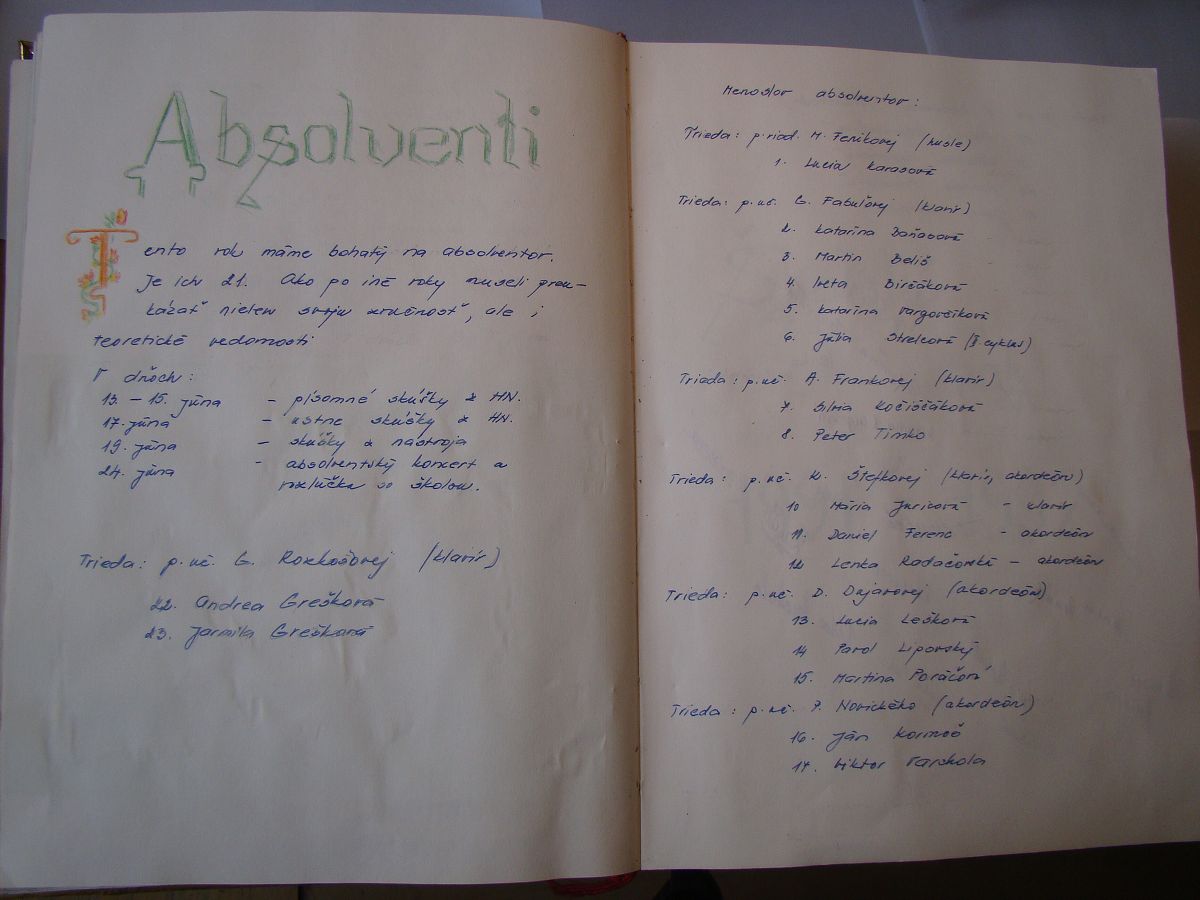 Absolventi
Tento rok máme bohatý na absolventov.
Je ich 21. Ako po iné roky museli preu-
kázať nielen svoju zručnosť, ale i
teoretické vedomosti
V dňoch:
13. – 15. júna – písomné skúšky z HN.
17. júna – ústne skúšky z HN.
19. júna – skúšky z nástroja
24. júna – absolventský koncert a
rozlúčka so školou.
Trieda: p. uč. G. Rozkošovej (klavír)
22. Andrea Grešková
23. Jarmila Grešková
Menoslov absolventov:
Trieda: p. riad. M. Fenikovej (husle)
1. Lucia Karasová
Trieda: p. uč. G. Fabušovej (klavír)
2. Katarína Baňasová
3. Martin Beliš
4. Iveta Birčáková
5. Katarína Vargovčíková
6. Júlia Strelcová (II. cyklus)
Trieda: p. uč. A. Frankovej (klavír)
7. Silvia Kočiščáková
8. Peter Timko
Trieda: p. uč. Štefkovej (klavír, akordeón)
10 Mária Juricová – klavír
11. Daniel Ferenc – akordeón
12 Lenka Radačovská – akordeón
Trieda: p. uč. D. Dujavovej (akordeón)
13. Lucia Lešková
14 Pavol Lipovský
15. Martina Poráčová
Trieda: p. uč. P. Novického (akordeón)
16. Ján Kormoš
17. Viktor Varchola